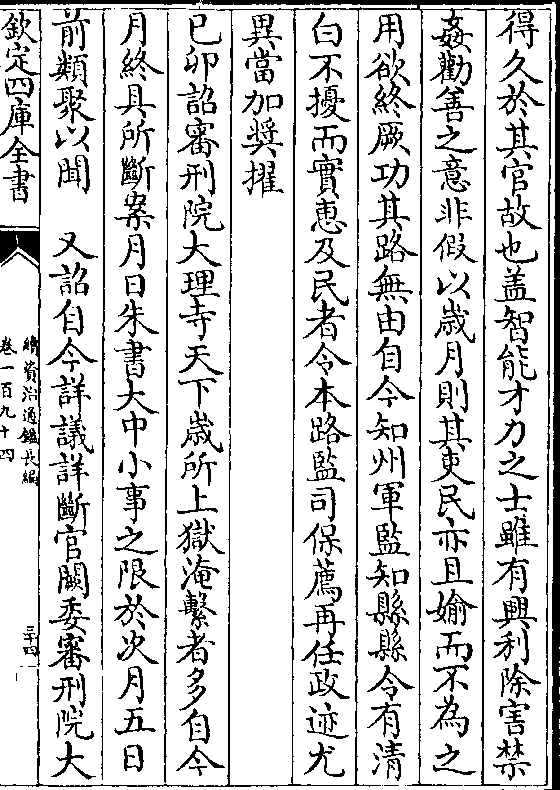 得久於其官故也盖智能才力之士雖有興利除害禁
姦勸善之意非假以歲月則其吏民亦且媮而不為之
用欲終厥功其路無由自今知州軍監知縣縣令有清
白不擾而實惠及民者令本路監司保薦再任政迹尤
異當加奬擢
已卯詔審刑院大理寺天下歲所上獄淹繫者多自今
月終具所斷案月日朱書大中小事之限於次月五日
前類聚以聞　又詔自今詳議詳斷官闕委審刑院大
欽定四庫全書
續資治通鑑長編
卷一百九十四
三十四